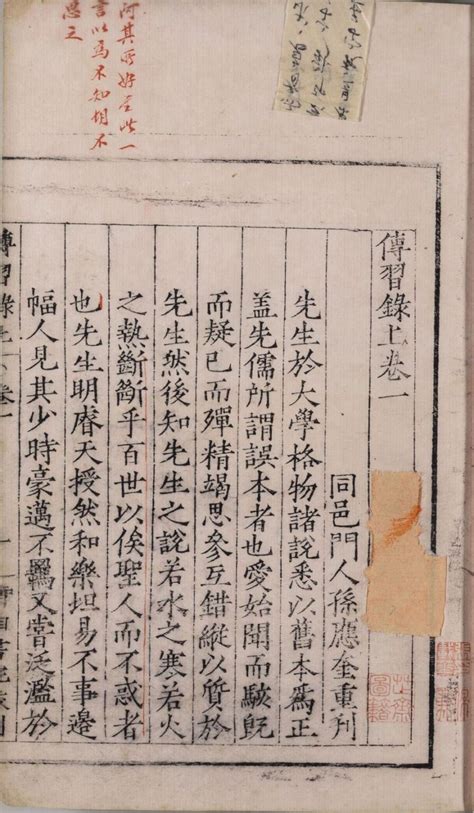 傳習錄上卷一
同邑門人孫應奎重刊
先生於大學格物諸說悉以舊本爲正
盖先儒所謂誤本者也愛始聞而駭旣
而疑已而殫精竭思參互錯縱以質於
先生然後知先生之說若水之寒若火
之熱斷斷乎百世以俟聖人而不惑者
也先生明睿天授然和樂坦易不事邊
幅人見其少時豪邁不羈又嘗泛濫於
傳習錄上 卷一
言以爲不知胡不